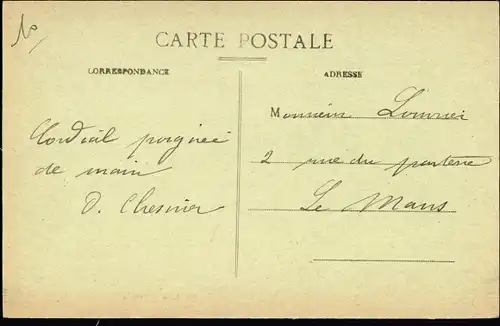 CARTE POSTALE
CORRESPONDANCE
ADRESSE
Cordial poignée
de main
D. Chesnier
Monsieur
2 rue du parterre
Le Mans